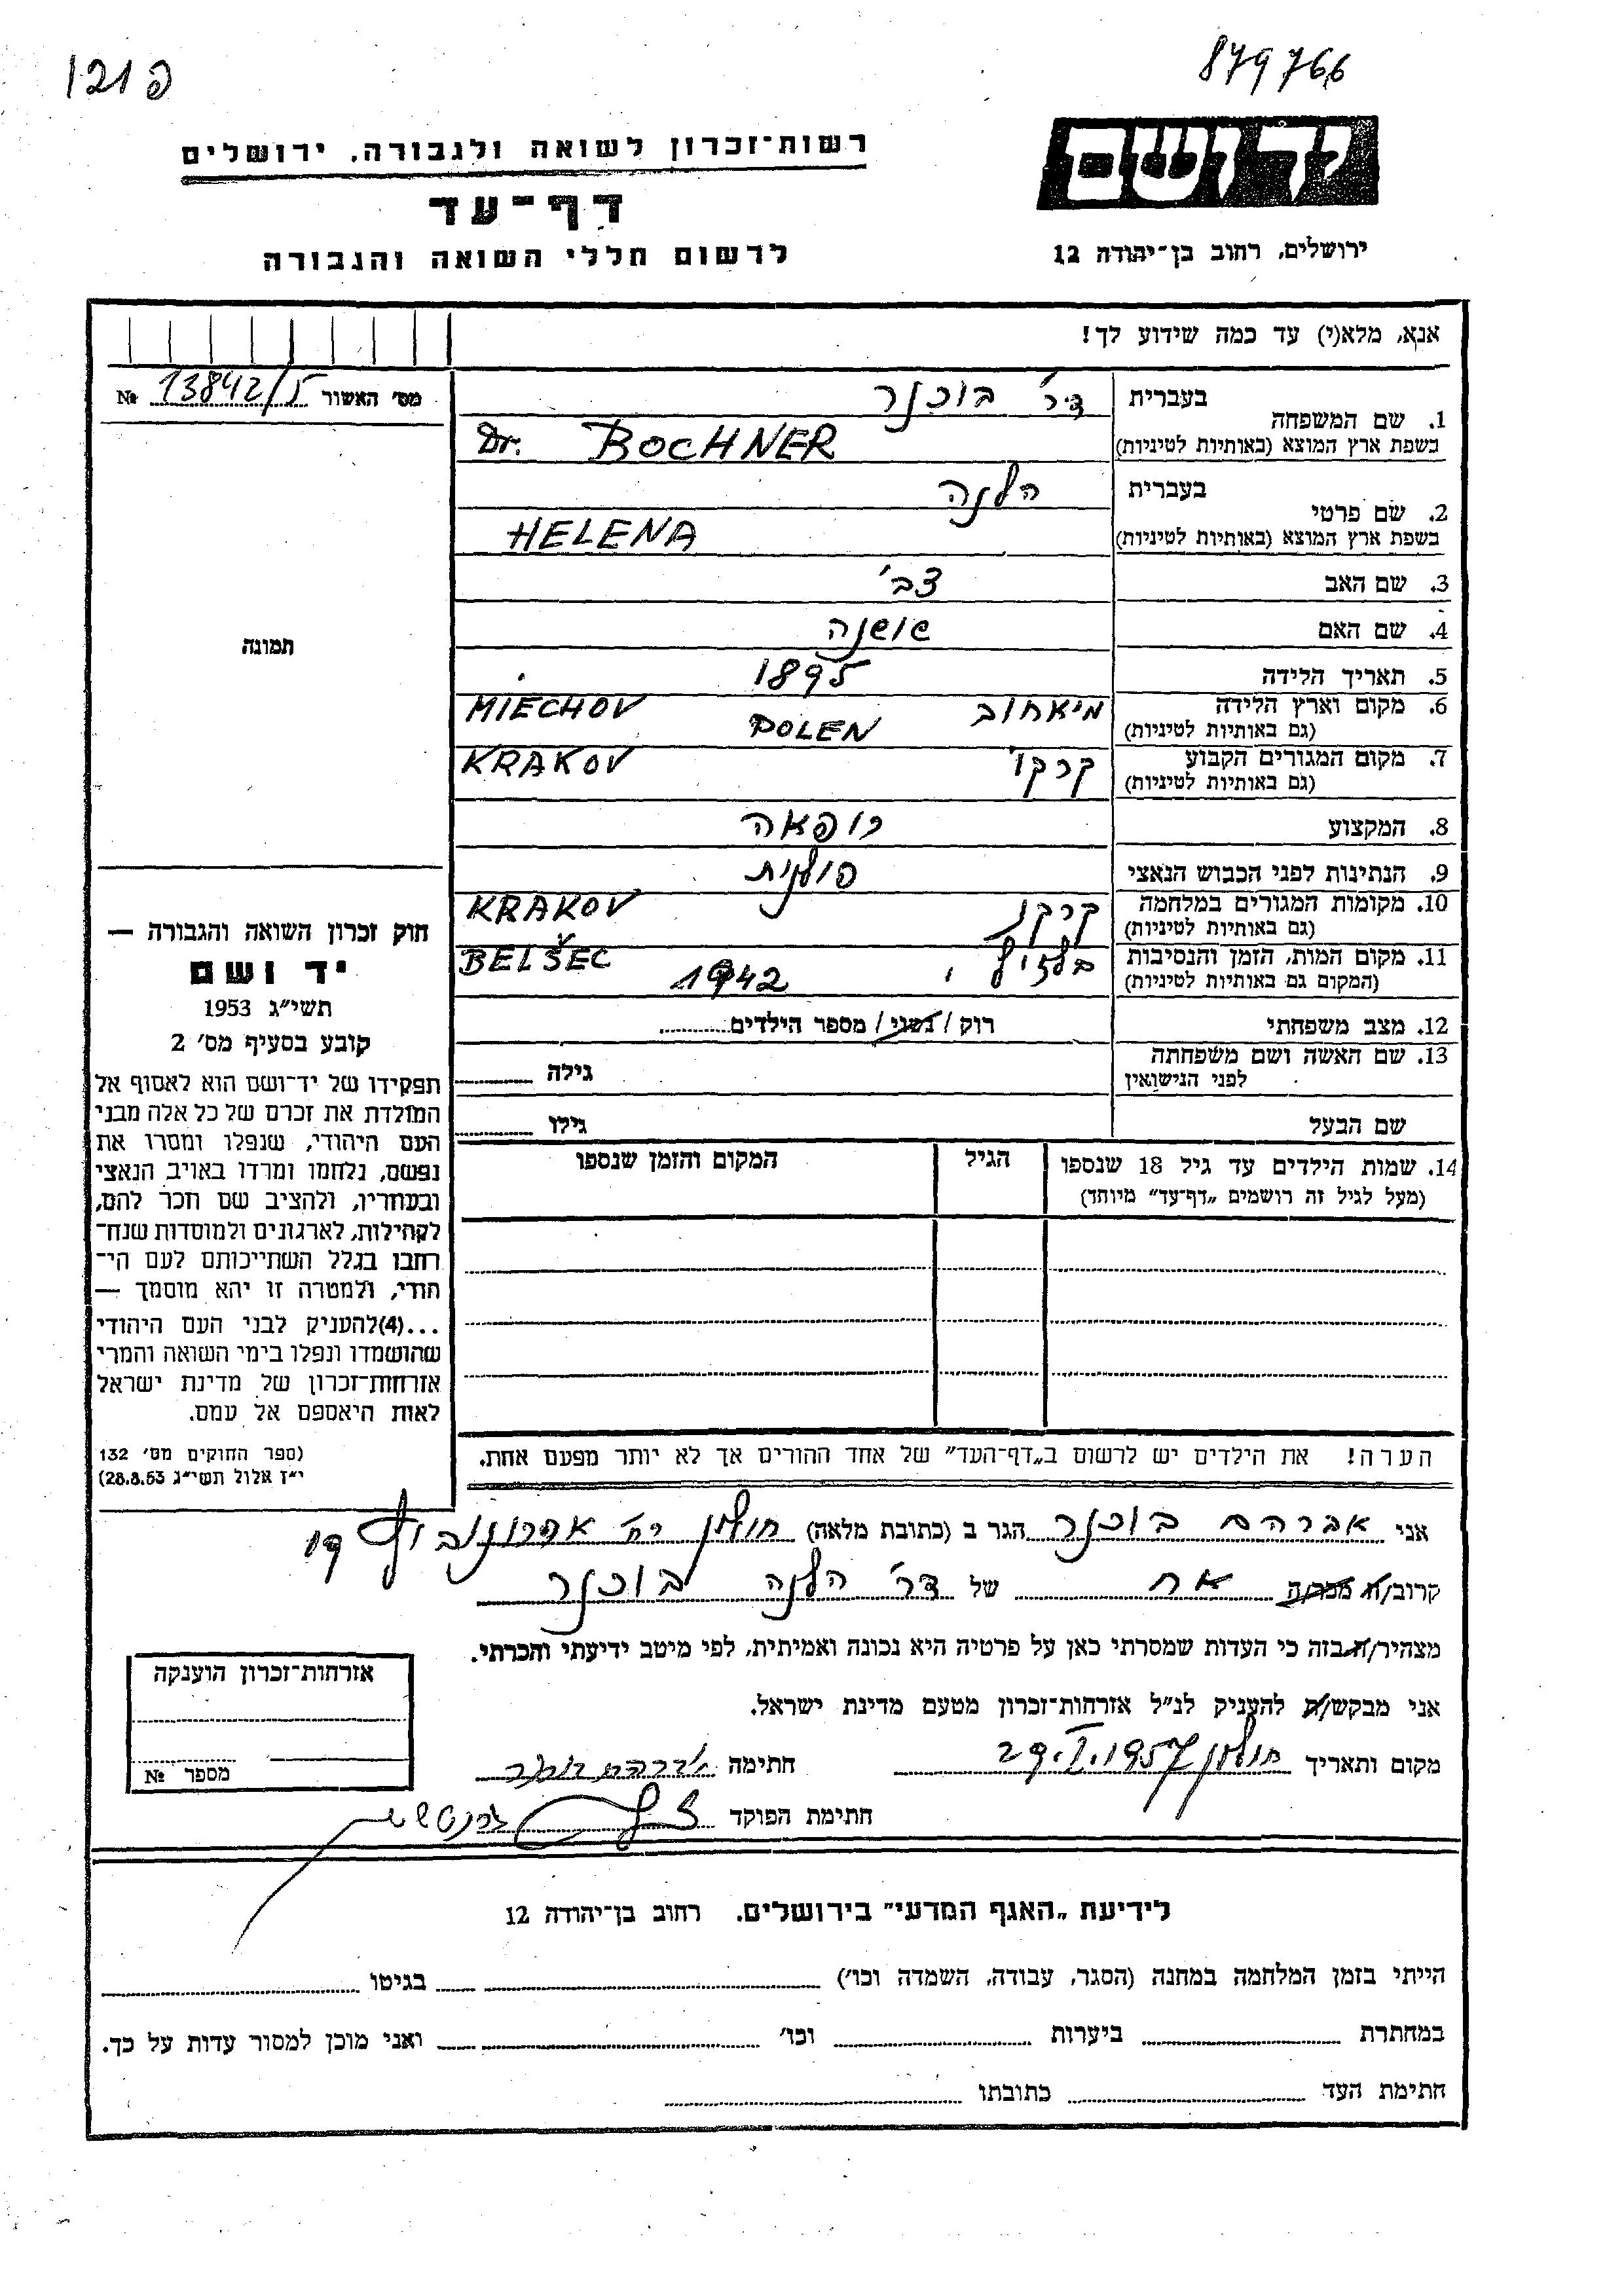 פ 121
879766
יד ושם
רשות־זכרון לשואה ולגבורה, ירושלים
דף־עד
לרשום חללי השואה והגבורה
ירושלים, רחוב בן־יהודה 12
אנא, מלא(י) עד כמה שידוע לך!
מס׳ האשור 13842/5 №
1. שם המשפחה בעברית ד״ר בוכנר
בשפת ארץ המוצא (באותיות לטיניות) Dr. BOCHNER
2. שם פרטי בעברית הלנה
בשפת ארץ המוצא (באותיות לטיניות) HELENA
3. שם האב צבי
4. שם האם שושנה
5. תאריך הלידה 1895
6. מקום וארץ הלידה (גם באותיות לטיניות) מיאחוב POLEN MIECHOV
7. מקום המגורים הקבוע (גם באותיות לטיניות) קרקו KRAKOV
8. המקצוע רופאה
9. הנתינות לפני הכבוש הנאצי פולנית
10. מקומות המגורים במלחמה (גם באותיות לטיניות) קרקו KRAKOV
11. מקום המות, הזמן והנסיבות (המקום גם באותיות לטיניות) 1942 BELŠEC
12. מצב משפחתי רוק / נשוי / מספר הילדים
13. שם האשה ושם משפחתה לפני הנישואין גילה
שם הבעל גילו
14. שמות הילדים עד גיל 18 שנספו הגיל המקום והזמן שנספו
(מעל לגיל זה רושמים „דף־עד״ מיוחד)
הערה! את הילדים יש לרשום ב„דף־העד״ של אחד ההורים אך לא יותר מפעם אחת.
תמונה
חוק זכרון השואה והגבורה —
יד ושם
תשי״ג 1953
קובע בסעיף מס׳ 2
תפקידו של יד־ושם הוא לאסוף אל
המולדת את זכרם של כל אלה מבני
העם היהודי, שנפלו ומסרו את
נפשם, נלחמו ומרדו באויב הנאצי
ובעוזריו, ולהציב שם וזכר להם,
לקהילות, לארגונים ולמוסדות שנח־
רבו בגלל השתייכותם לעם הי־
הודי, ולמטרה זו יהא מוסמך —
...(4) להעניק לבני העם היהודי
שהושמדו ונפלו בימי השואה והמרי
אזרחות־זכרון של מדינת ישראל
לאות היאספם אל עמם.
(ספר החוקים מס׳ 132
י״ז אלול תשי״ג 28.8.53)
אני אברהם בוכנר הגר ב (כתובת מלאה) חולון רח׳ אהרונוביץ 19
קרוב/ה מכר/ה אח של דר׳ הלנה בוכנר
מצהיר/ה בזה כי העדות שמסרתי כאן על פרטיה היא נכונה ואמיתית, לפי מיטב ידיעתי והכרתי.
אני מבקש/ת להעניק לנ״ל אזרחות־זכרון מטעם מדינת ישראל.
מקום ותאריך חולון 29.I.1957 חתימה אברהם בוכנר
חתימת הפוקד
אזרחות־זכרון הוענקה
מספר №
לידיעת „האגף המדעי״ בירושלים. רחוב בן־יהודה 12
הייתי בזמן המלחמה במחנה (הסגר, עבודה, השמדה וכו׳) בגיטו
במחתרת ביערות וכו׳ ואני מוכן למסור עדות על כך.
חתימת העד כתובתו